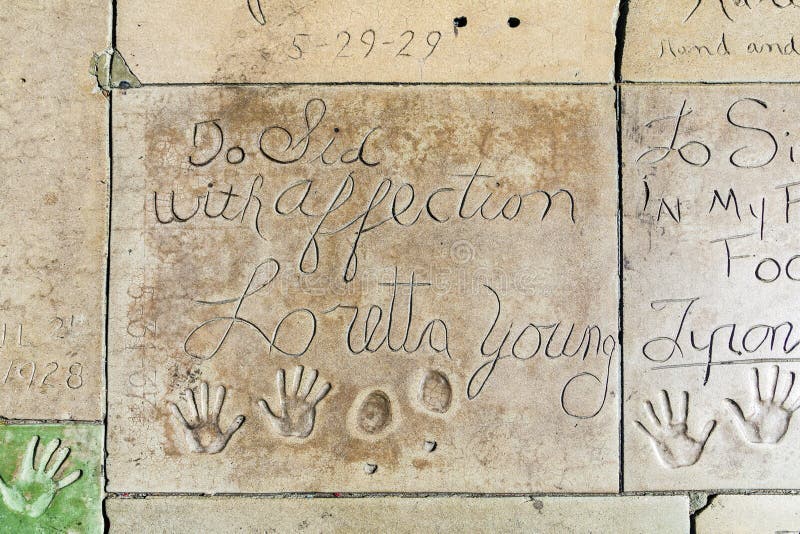 5-29-29
Hand and
To Sid
with affection
Loretta Young
To Si
IN MY F
Foo
Tyron
1928
dreamstime